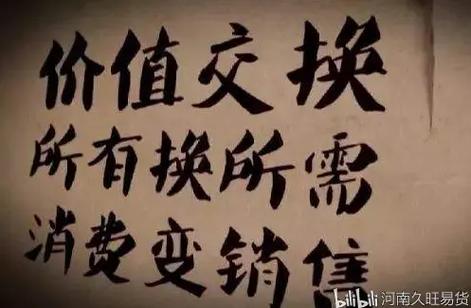 价值交换
所有换所需
消费变销售
bilibili 河南久旺易货